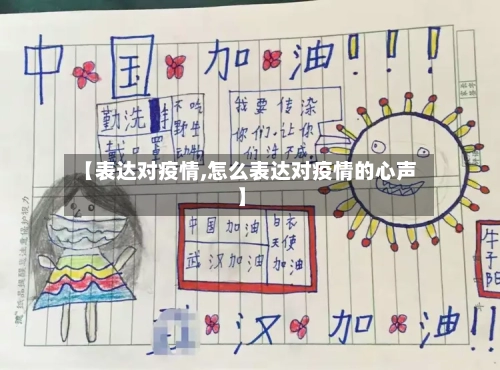 中国加油!!!
勤洗
戴口罩
不吃
野生
动物
我要传染
你们.让你
们活不成.
【表达对疫情,怎么表达对疫情的心声
】
中国加油
武汉加油
白衣
天使
加油
汉加油!!